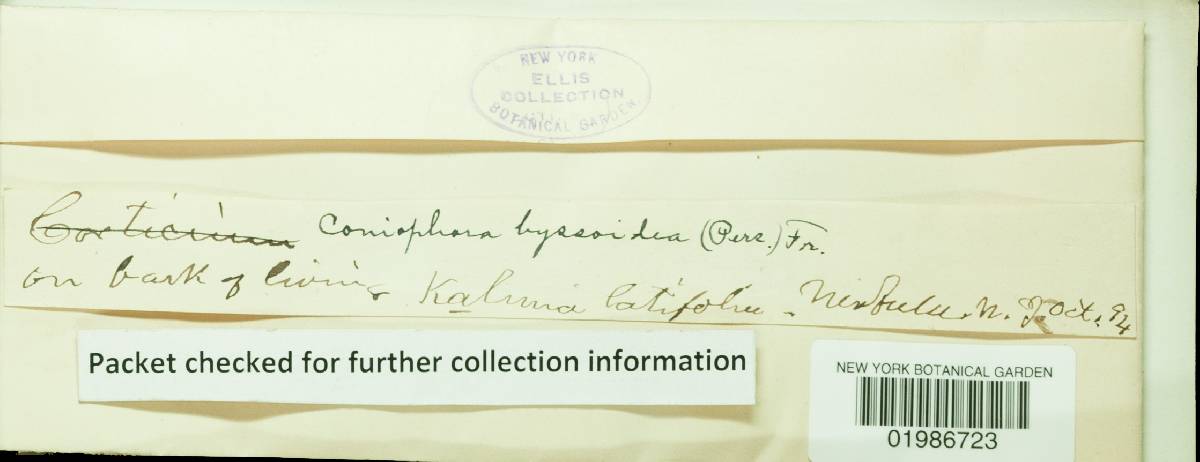 NEW YORK
ELLIS
COLLECTION
BOTANICAL GARDEN
Corticium Coniophora byssoidea (Pers.) Fr.
on bark of living Kalmia latifolia. Newfield, N. J. Oct. 94
Packet checked for further collection information
NEW YORK BOTANICAL GARDEN
01986723